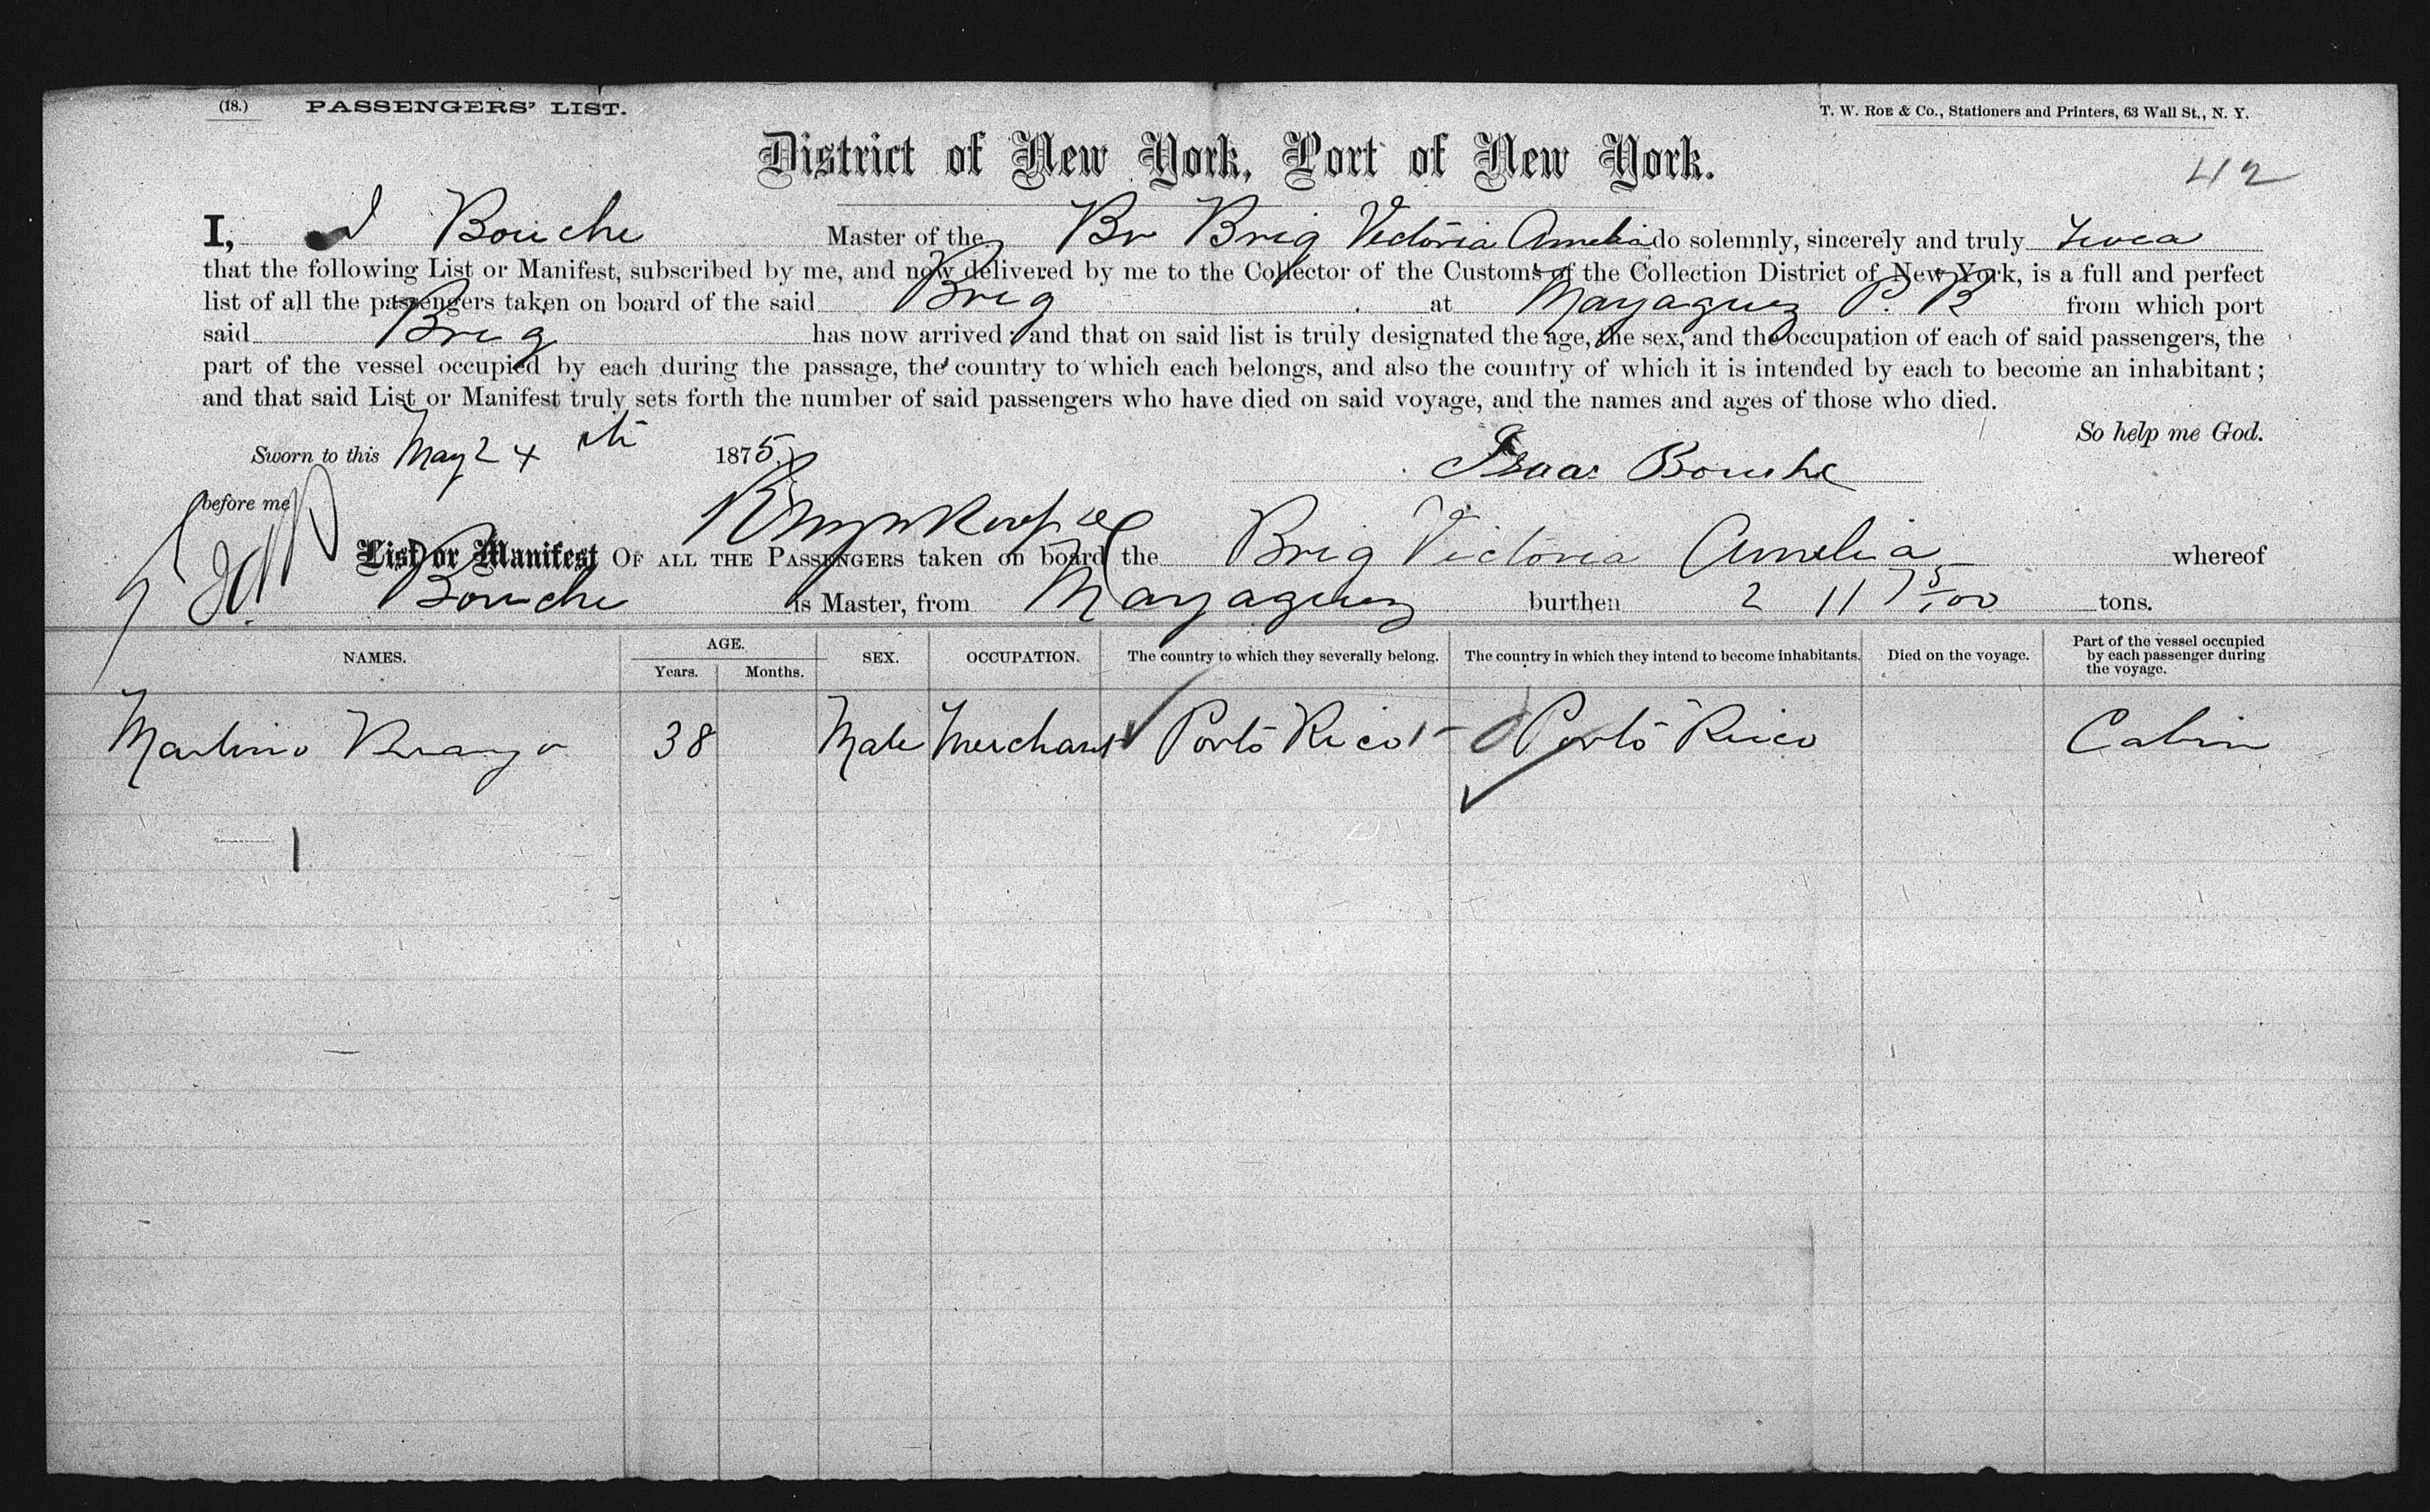 (18.) PASSENGERS' LIST.
T. W. Roe & Co., Stationers and Printers, 63 Wall St., N. Y.
District of New York, Port of New York.
42
I, I Bouche Master of the Br Brig Victoria Amelia do solemnly, sincerely and truly
that the following List or Manifest, subscribed by me, and now delivered by me to the Collector of the Customs of the Collection District of New York, is a full and perfect
list of all the passengers taken on board of the said Brig at Mayaguez P. R from which port
said Brig has now arrived; and that on said list is truly designated the age, the sex, and the occupation of each of said passengers, the
part of the vessel occupied by each during the passage, the country to which each belongs, and also the country of which it is intended by each to become an inhabitant;
and that said List or Manifest truly sets forth the number of said passengers who have died on said voyage, and the names and ages of those who died.
So help me God.
Sworn to this May 24th 1875. Isaac Bouche
before me
List or Manifest OF ALL THE PASSENGERS taken on board the Brig Victoria Amelia whereof
Bouche is Master, from Mayaguez burthen 211 75/100 tons.
NAMES. AGE. Years. Months. SEX. OCCUPATION. The country to which they severally belong. The country in which they intend to become inhabitants. Died on the voyage. Part of the vessel occupied by each passenger during the voyage.
Martino 38 Male Merchant Porto Rico Porto Rico Cabin
1